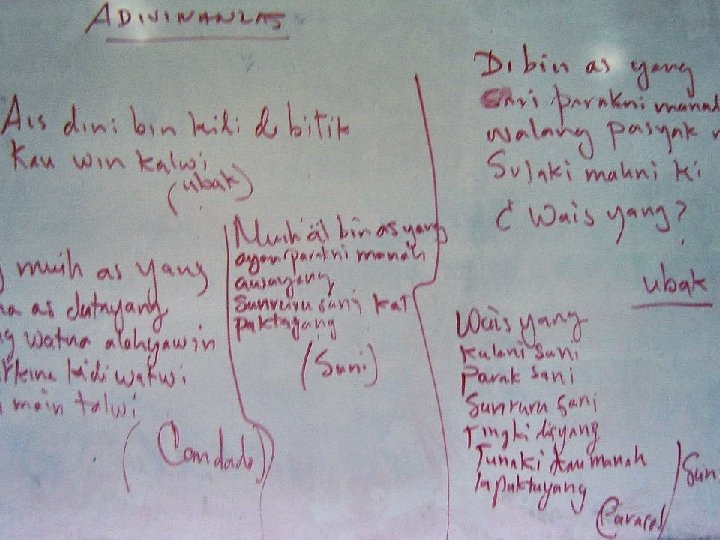 ADIVINANZAS
Ais dini bin kidi di bitik
Kau win kalwi
(ubak)
muih as yang
as dutayang
watna alahyawin
kidi watwi
main talwi
(Candado)
Muih as bin as yang
ayan parakni manah
awayang
Sunruru sani kat
paktayang
(Suni)
Di bin as yang
parakni manah
walang pasyak
Sulaki mahni ki
¿Wais yang?
ubak
Wais yang
kulani sani
Parak sani
Sunruru sani
Tingki disyang
Tunaki kau manah
lapaktayang
(Caracol/